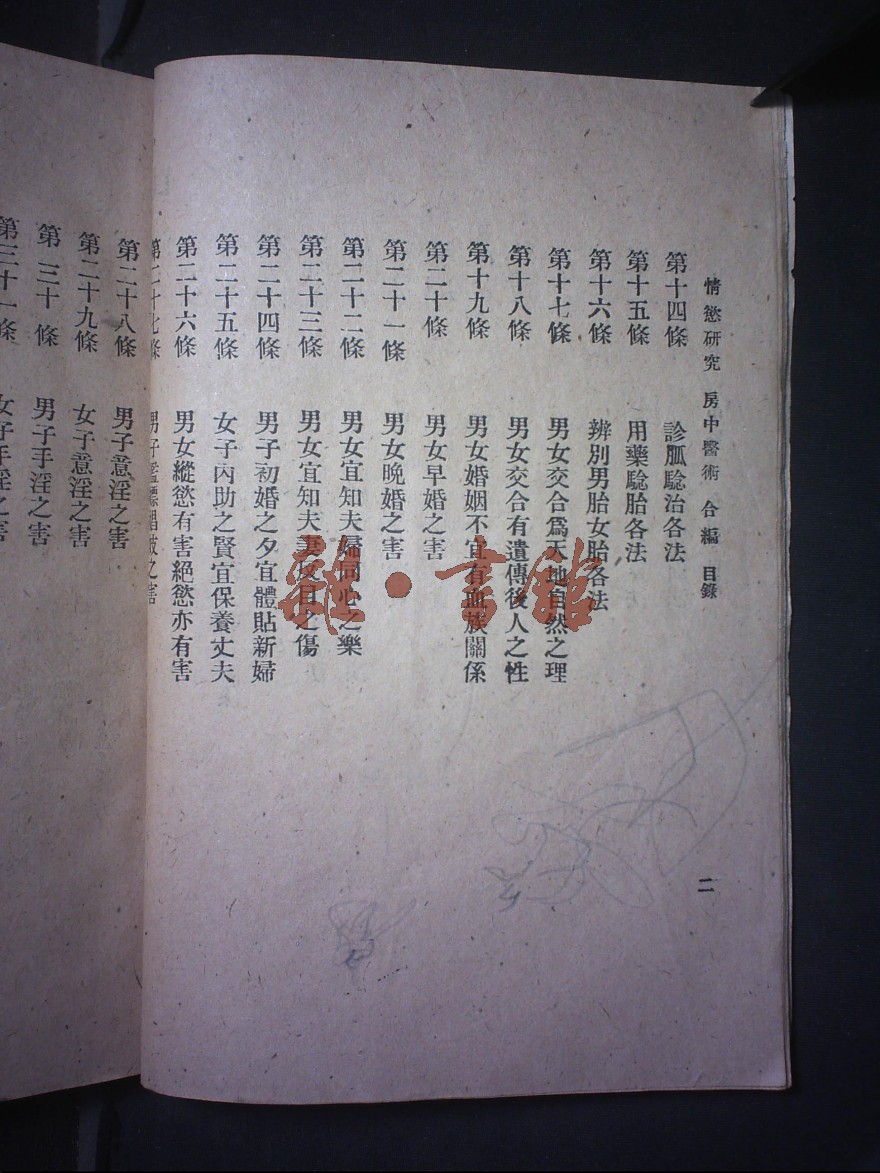 情慾研究 房中醫術 合編 目錄
二
第十四條 診脈騐治各法
第十五條 用藥騐胎各法
第十六條 辨別男胎女胎各法
第十七條 男女交合爲天地自然之理
第十八條 男女交合有遺傳後人之性
第十九條 男女婚姻不宜有血族關係
第二十條 男女早婚之害
第二十一條 男女晚婚之害
第二十二條 男女宜知夫婦同心之樂
第二十三條 男女宜知夫妻反目之傷
第二十四條 男子初婚之夕宜體貼新婦
第二十五條 女子內助之賢宜保養丈夫
第二十六條 男女縱慾有害絕慾亦有害
第二十七條 男子濫嫖娼妓之害
第二十八條 男子意淫之害
第二十九條 女子意淫之害
第三十條 男子手淫之害
第三十一條 女子手淫之害
雜·書館